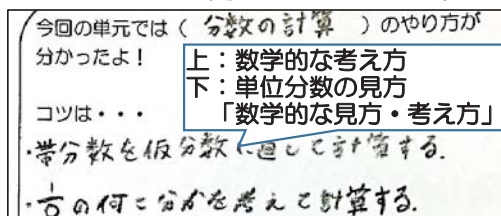 今回の単元では（ 分数の計算 ）のやり方が
分かったよ！
上：数学的な考え方
下：単位分数の見方
「数学的な見方・考え方」
コツは・・・
・帯分数を仮分数に直して計算する。
・1/○の何こ分かを考えて計算する。